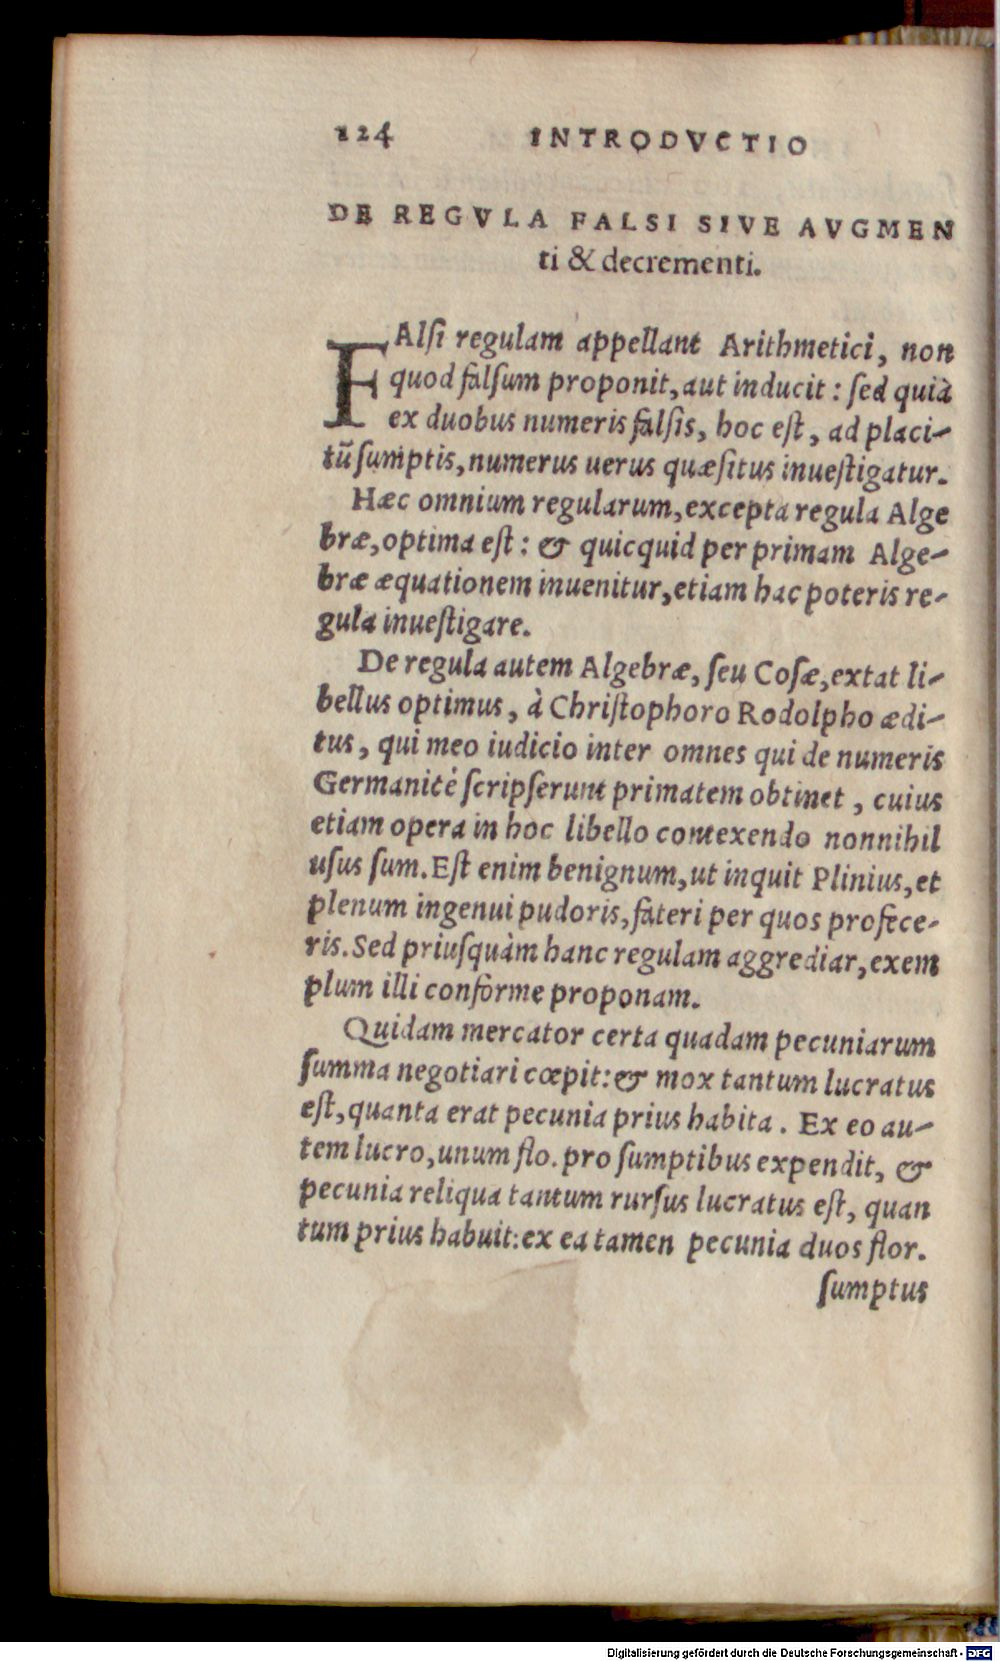 124 INTRODVCTIO
DE REGVLA FALSI SIVE AVGMEN
ti & decrementi.
FAlſi regulam appellant Arithmetici, non
quod falſum proponit, aut inducit: ſed quià
ex duobus numeris falſis, hoc eſt, ad placi-
tũ ſumptis, numerus uerus quæſitus inueſtigatur.
Hæc omnium regularum, excepta regula Alge
bræ, optima eſt: & quicquid per primam Alge-
bræ æquationem inuenitur, etiam hac poteris re-
gula inueſtigare.
De regula autem Algebræ, ſeu Coſæ, extat li-
bellus optimus, à Chriſtophoro Rodolpho ædi-
tus, qui meo iudicio inter omnes qui de numeris
Germanicè ſcripſerunt primatem obtinet, cuius
etiam opera in hoc libello contexendo nonnihil
uſus ſum. Eſt enim benignum, ut inquit Plinius, et
plenum ingenui pudoris, fateri per quos profece-
ris. Sed priuſquàm hanc regulam aggrediar, exem
plum illi conforme proponam.
Quidam mercator certa quadam pecuniarum
ſumma negotiari cœpit: & mox tantum lucratus
eſt, quanta erat pecunia prius habita. Ex eo au-
tem lucro, unum flo. pro ſumptibus expendit, &
pecunia reliqua tantum rurſus lucratus eſt, quan
tum prius habuit: ex ea tamen pecunia duos flor.
ſumptus
Digitalisierung gefördert durch die Deutsche Forschungsgemeinschaft - DFG